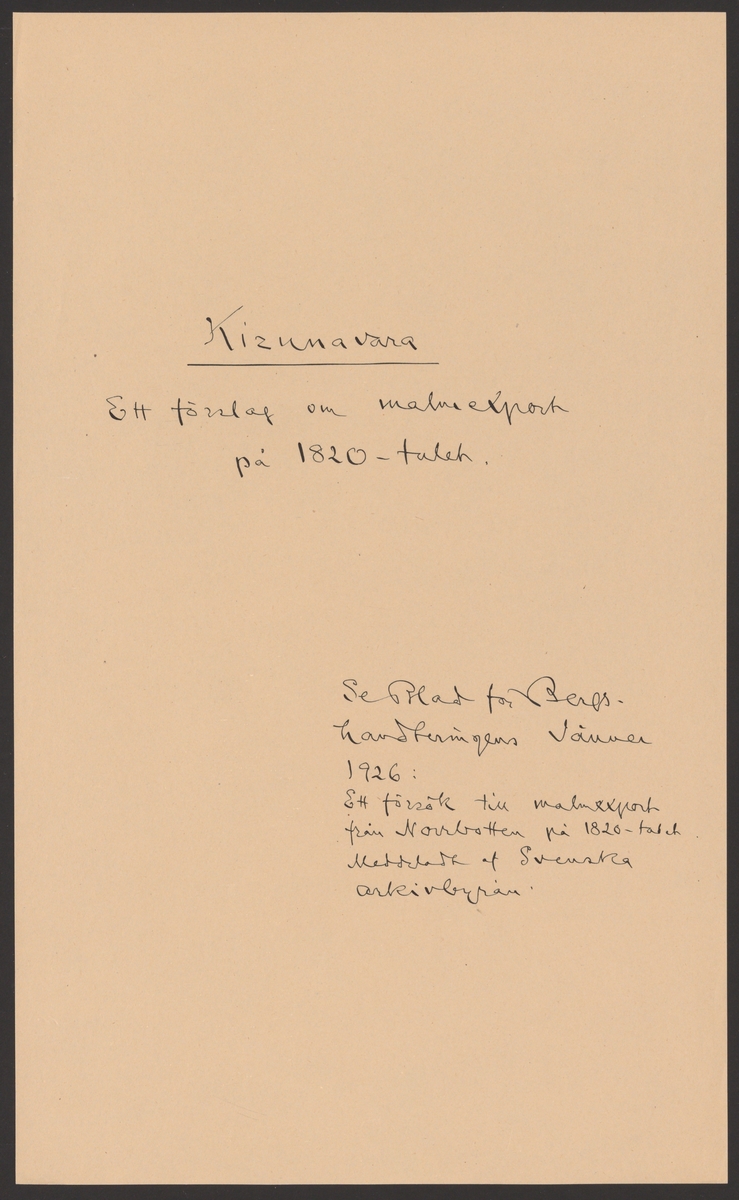 Kirunavara
Ett förslag om malmexport
på 1820-talet.
Se Blad för Bergs-
handteringens Vänner
1926:
Ett försök till malmexport
från Norrbotten på 1820-talet.
Meddeladt af Svenska
arkivbyrån.